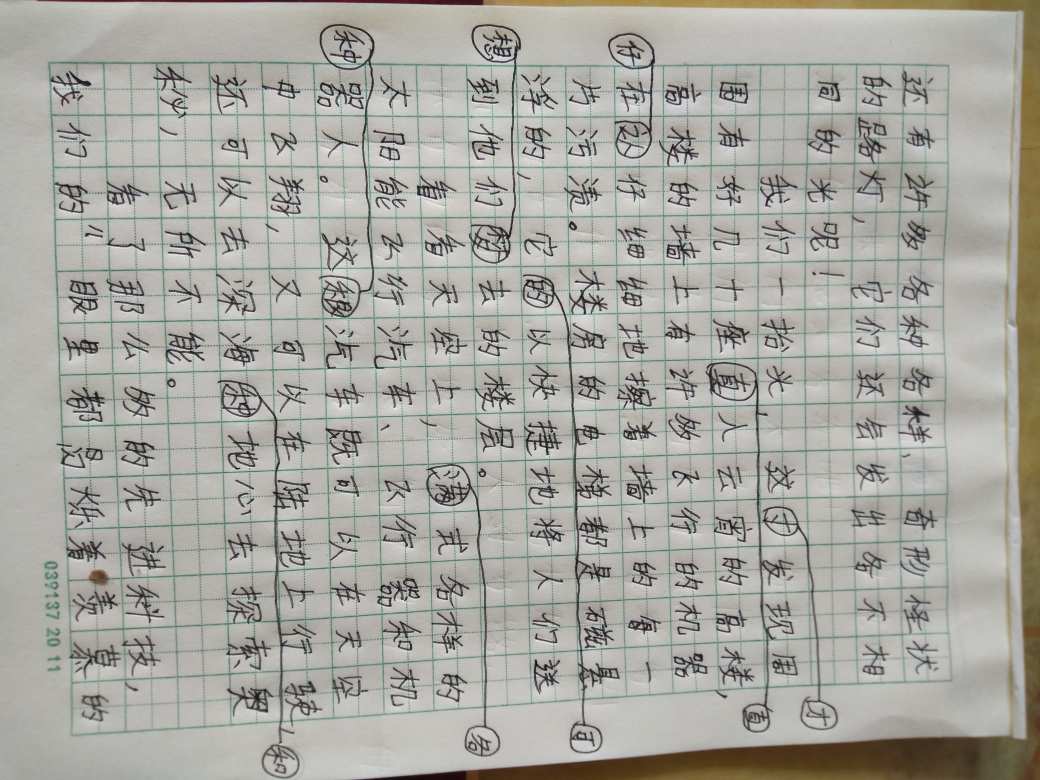 还有许多各种各样、奇形怪状
的路灯，它们还会发出各不相
同的光呢！
我们一抬头，这才发现周
才
围有好几十座直人云霄的高楼，
直
高楼的墙上有许多飞行的机器
在仔细细地擦着墙上的每一
仔
片污渍。楼房的电梯都是磁悬
浮的，它的以快捷地将人们送
可
到他们去的楼层。
想
看着天空上，满式各样的
各
太阳能飞行汽车、飞行器和机
器人。这汽车既可以在天空
种
中飞翔，又可以在陆地上行驶，
还可以去深海种地心去探索奥
和
秘，无所不能。
看了那么多的先进科技，
我们的"眼里都闪烁着羡慕的
039137 20 11